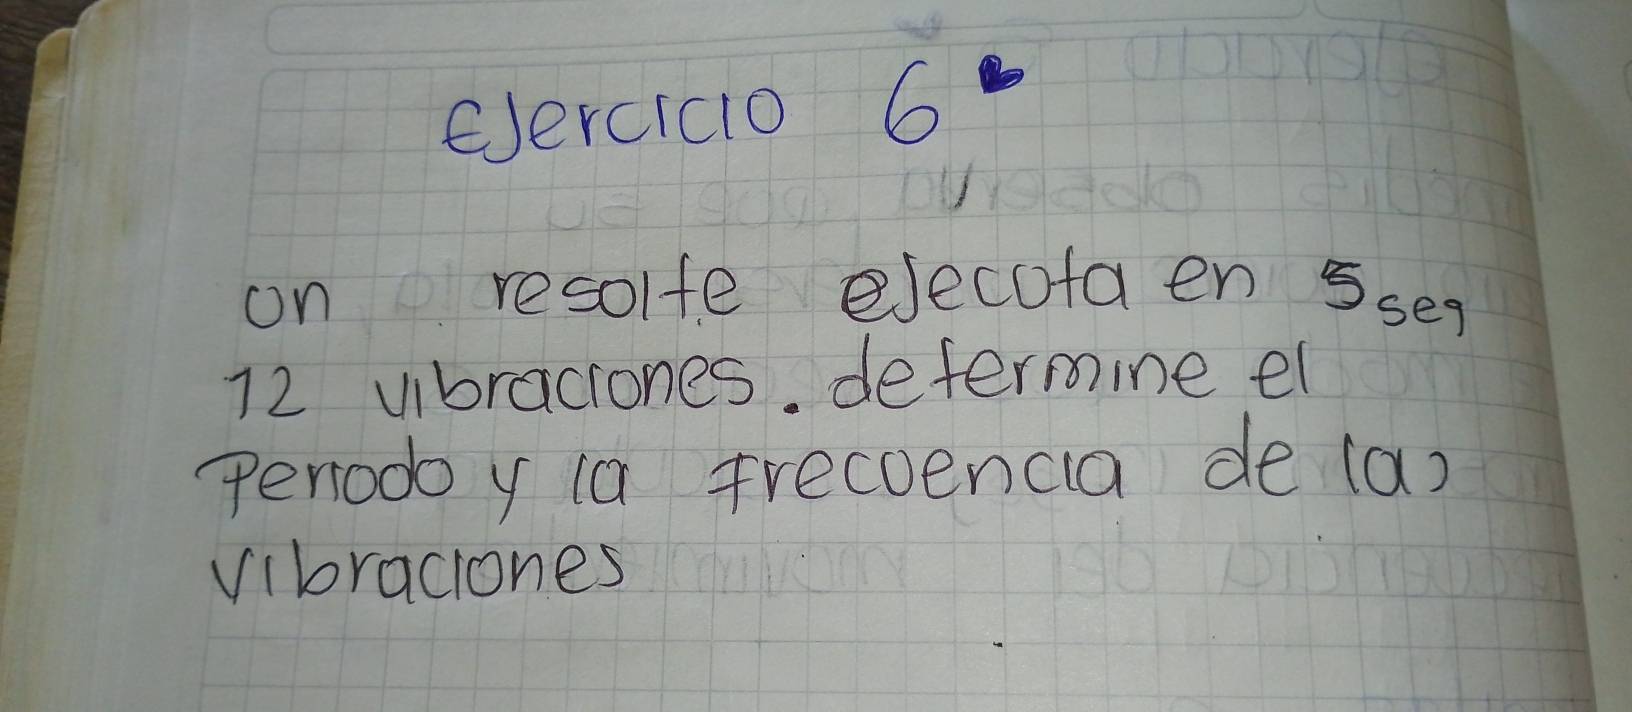 Ejercicio 6
un resolte ejecuta en 5 seg
12 vibraciones. determine el
Periodo y la frecuencia de las
vibraciones